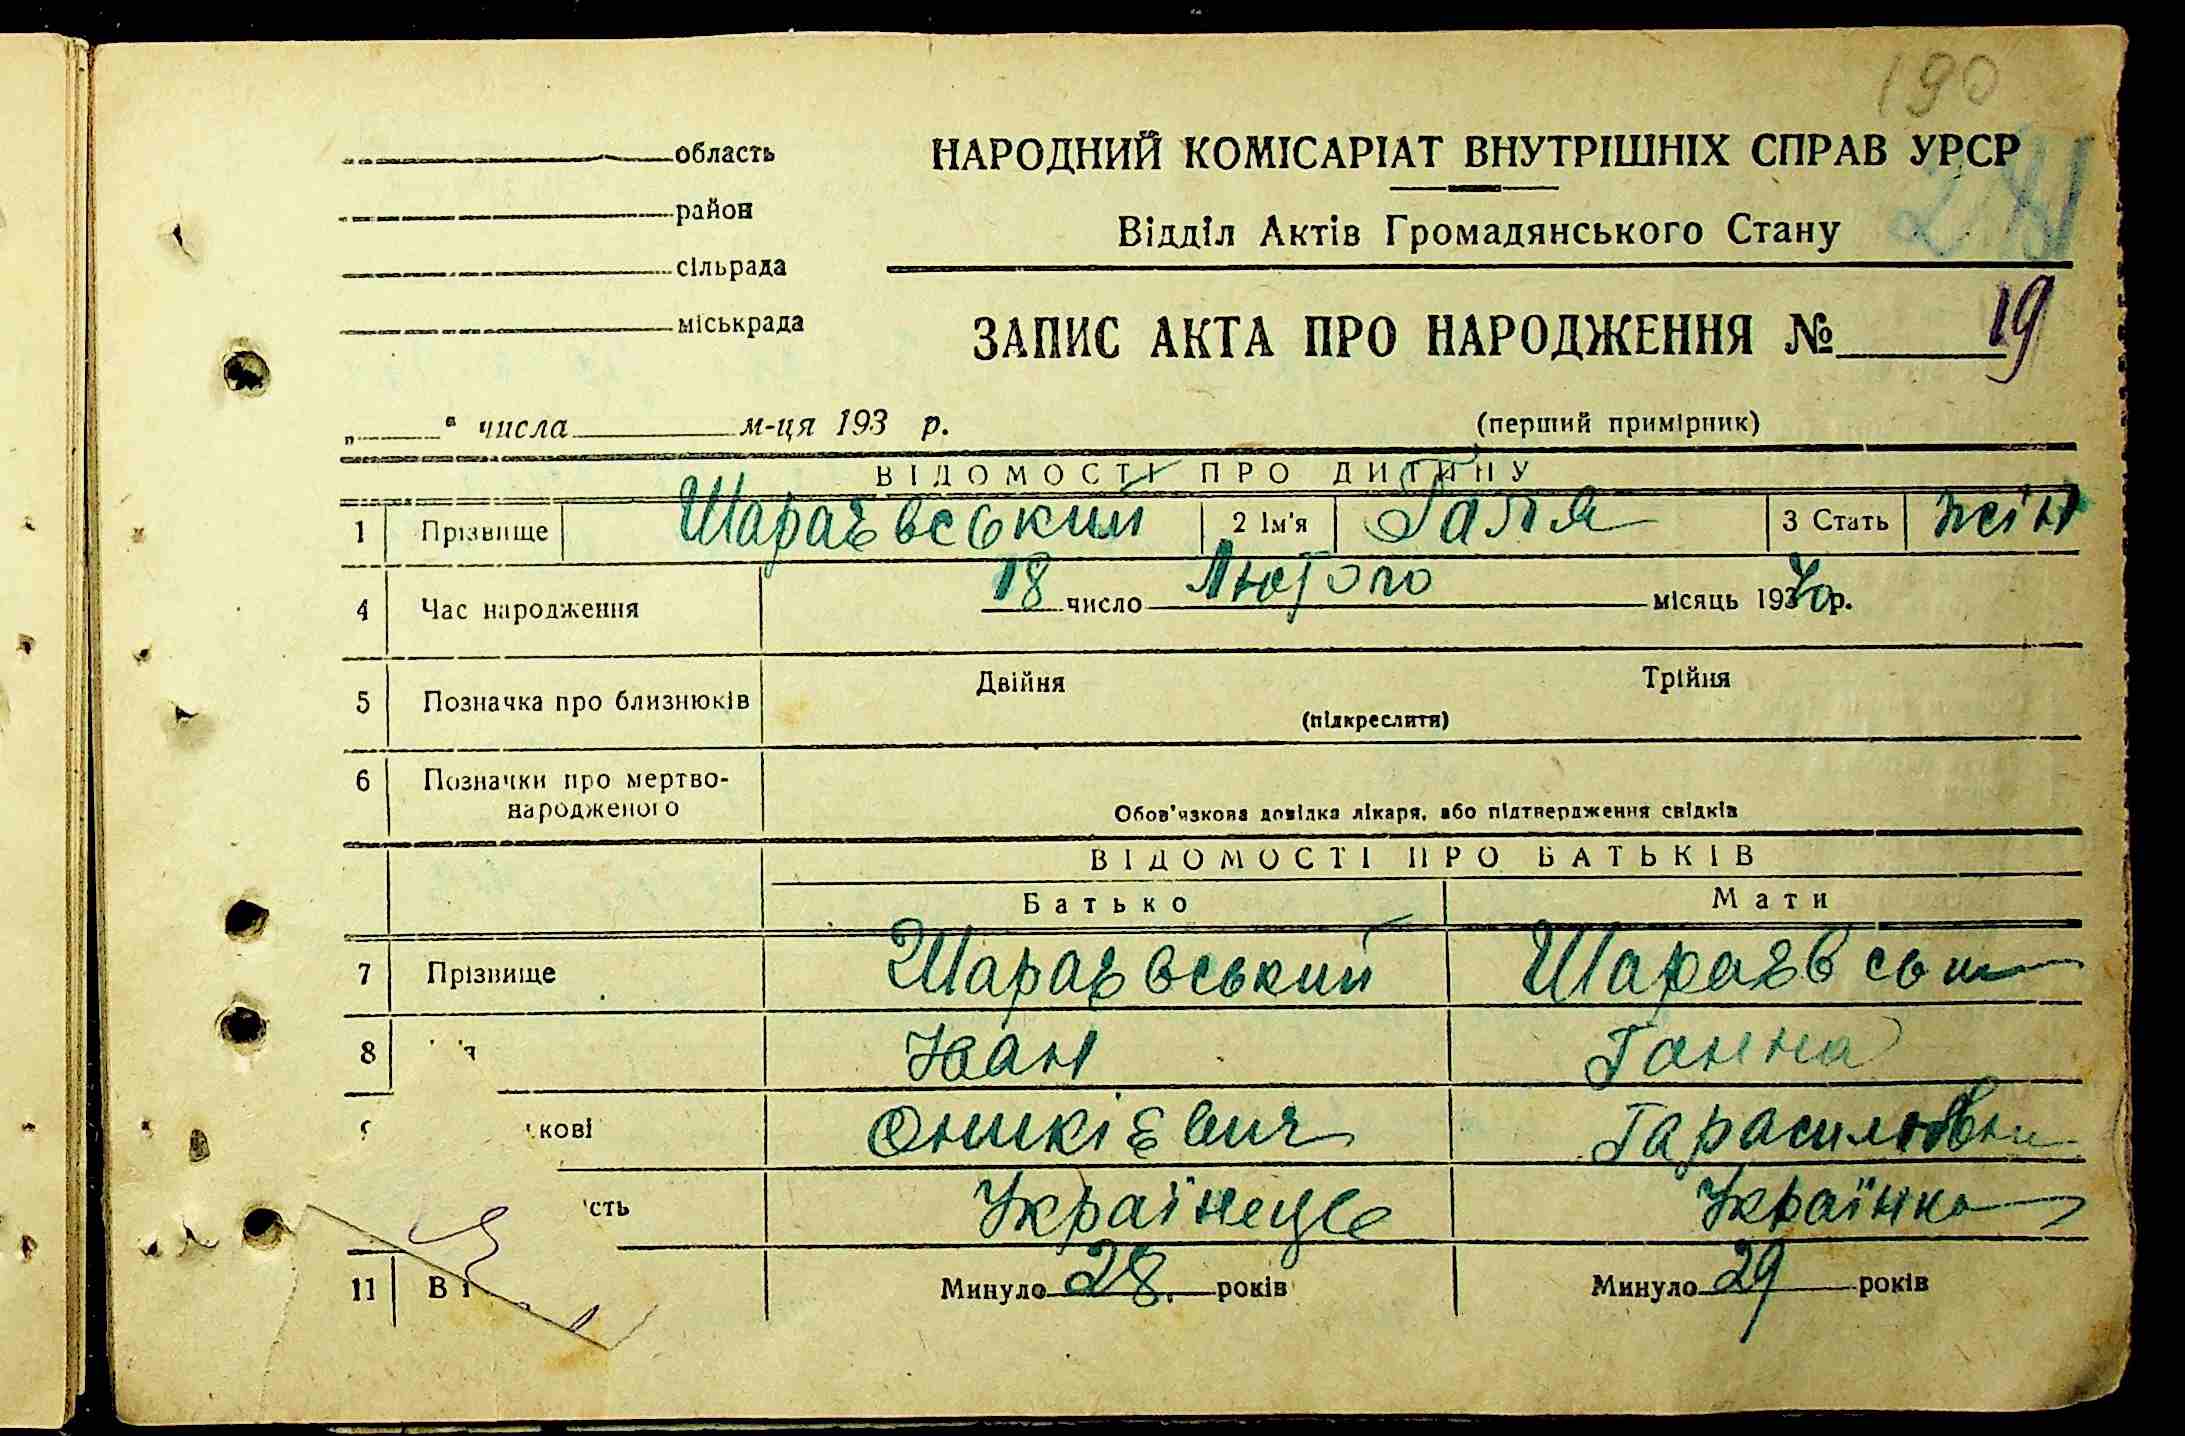 190
область НАРОДНИЙ КОМІСАРІАТ ВНУТРІШНІХ СПРАВ УРСР
район
Відділ Актів Громадянського Стану
сільрада
міськрада
ЗАПИС АКТА ПРО НАРОДЖЕННЯ № 19
„ “ числа м-ця 193 р. (перший примірник)
ВІДОМОСТІ ПРО ДИТИНУ
1 Прізвище Шараєвський 2 Ім'я Галя 3 Стать жін
4 Час народження 18 число Лютого місяць 1940р.
Двійня Трійня
5 Позначка про близнюків
(підкреслити)
6 Позначки про мертво-
народженого
Обов'язкова довідка лікаря, або підтвердження свідків
ВІДОМОСТІ ПРО БАТЬКІВ
Батько Мати
7 Прізвище Шараєвський Шараєвськ
8 Іван Ганна
кові Оникієвич Гарасимовн
ість Українець Українка
11 Ві Минуло 28. років Минуло 29 років